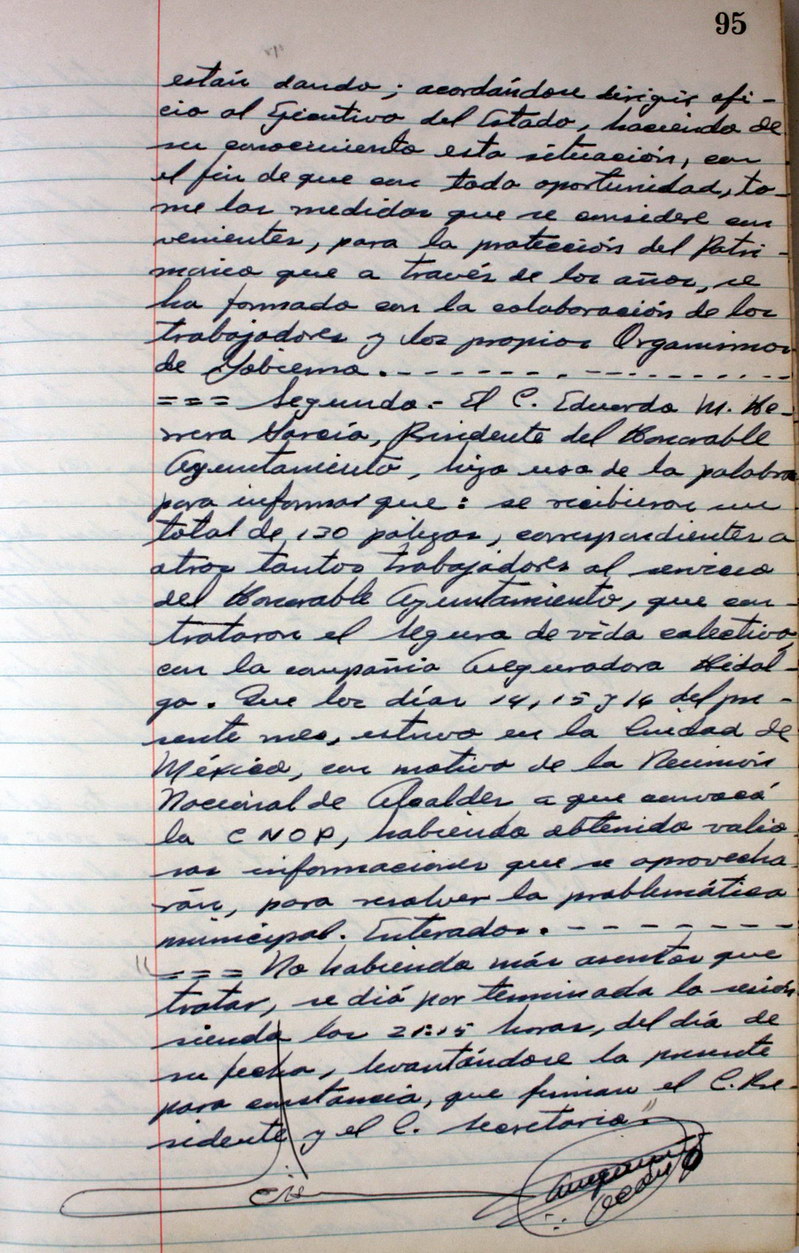 95
están dando; acordándose dirigir ofi-
cio al Ejecutivo del Estado, haciendo de
su conocimiento esta situación, con
el fin de que con toda oportunidad, to-
me las medidas que se considere con
venientes, para la protección del Patri-
monio que a través de los años, se
ha formado con la colaboración de los
trabajadores y los propios Organismos
de Gobierno.- - - - - - - . - - - - - - - . - -
=== Segundo.- El C. Eduardo M. He-
rrera García, Presidente del Honorable
Ayuntamiento, hizo uso de la palabra
para informar que: se recibieron un
total de 130 pólizas, correspondientes a
otros tantos trabajadores al servicio
del Honorable Ayuntamiento, que con-
trataron el Seguro de vida colectivo,
con la compañía Aseguradora Hidal-
go. Que los días 14, 15 y 16 del pre-
sente mes, estuvo en la Ciudad de
México, con motivo de la Reunión
Nacional de Alcaldes a que convocó
la CNOP, habiendo obtenido valio
sas informaciones que se aprovecha
rán, para resolver la problemática
municipal. Enterados.- - - - - - - -
"=== No habiendo más asuntos que
tratar, se dió por terminada la sesión
siendo las 21:15 horas, del día de
su fecha, levantándose la presente
para constancia, que firman el C. Pre-
sidente y el C. Secretario."